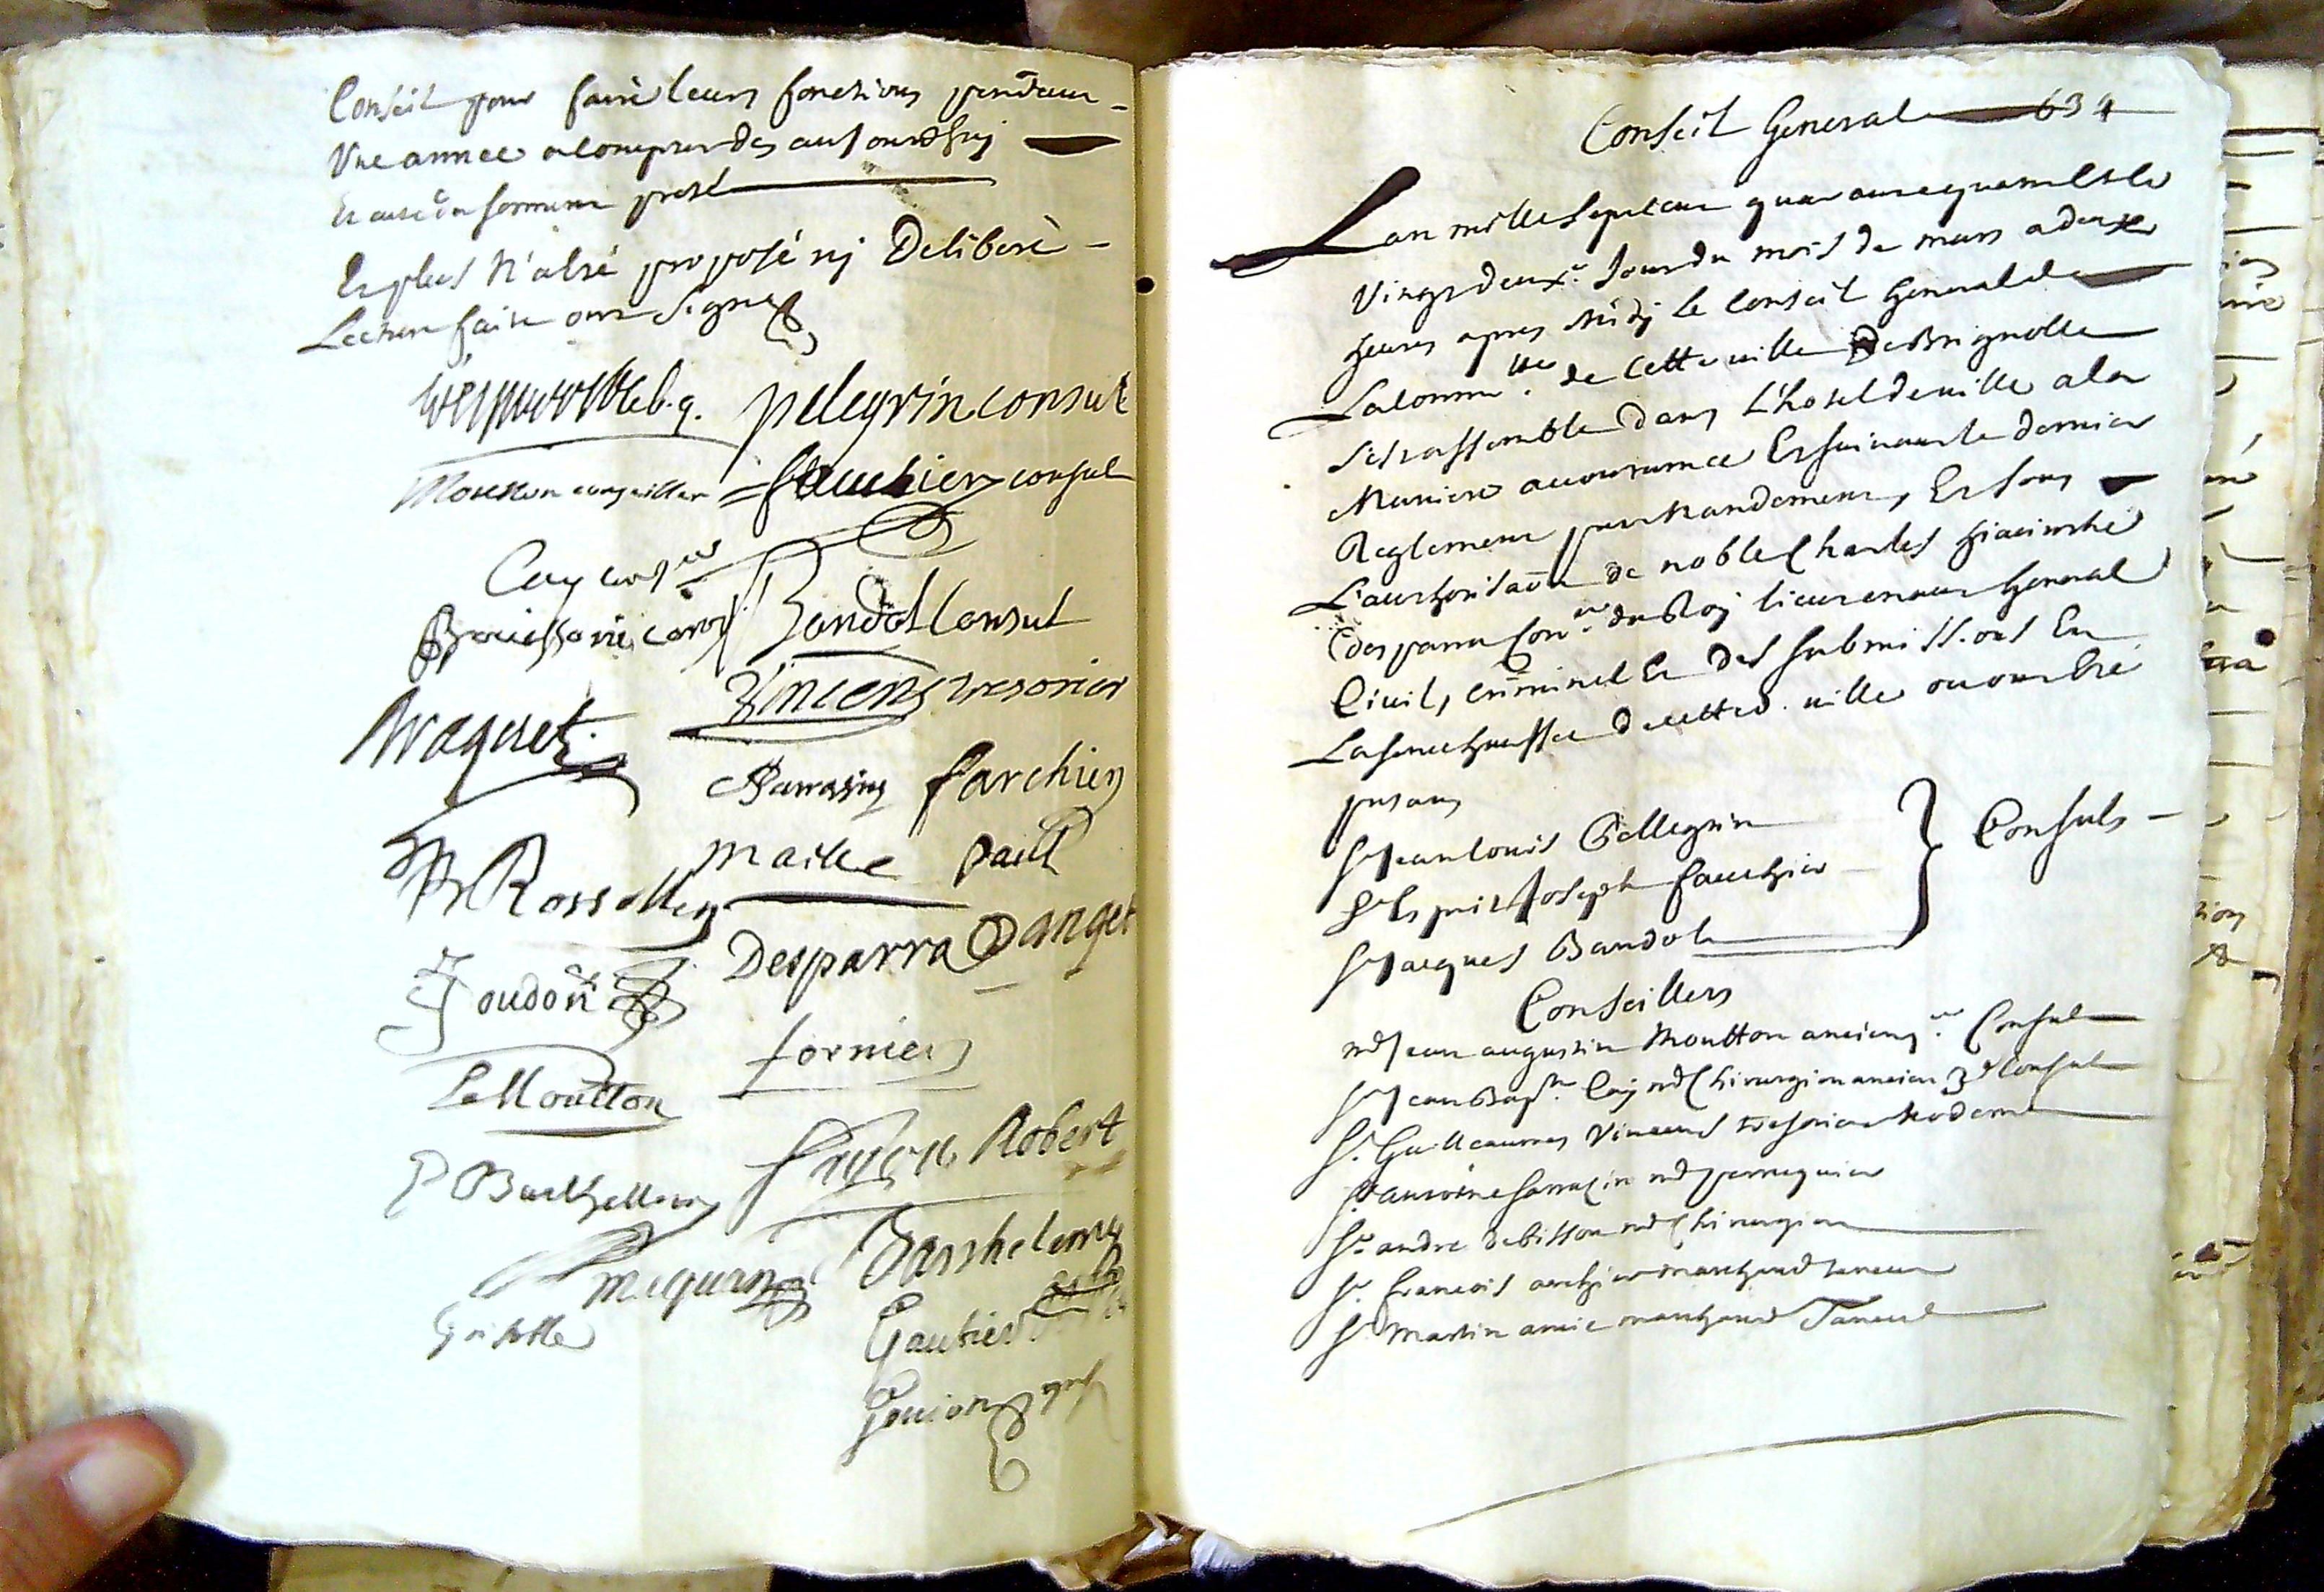 Conseil pour faire leurs fonctions pendant
Une annee a compter des aujourdhuj
Et ont du serment presté
Et plus n'a esté proposé nj Deliberé
Lecture faite ont signé
pelegrin consul
Moutton conseiller fauchier consul
Cay cons.er
Bouissonie Bandol Consul
Vincens tresorier
Braqueti
Sarrasin farchier
maille paul
Rossollin
Desparra Danget
Joudon
fornier
Le Moutton
fayou Robert
P Barthellemy
Barthelemy
mequin
Gautier
Grisolle
Gouion gref
Conseil General 634
Lan mille sept cens quarante quatre et le
Vingt deux.e Jour du mois de mars a deux
heures apres Midj le Conseil General de
La Comm.tte de Cette ville De Brignolle
Sest assemblé Dans L'hostel de ville a la
Maniere accoutumée Et suivant le dernier
Reglement par Mandement, Et sous
L'authorisaõn de noble Charles hiacinthe
Desparra Con.er du Roj lieutenant General
Civil, criminel Et Des submissions En
La senechaussée de cette d. ville ou ont Esté
presans
S.r Jean louis Pellegrin
S.r Esprit Joseph fauchier } Consuls
S.r Jacques Bandol
Conseillers
m.e Jean augustin Moutton ancien p.er Consul
S.r Jean Bap.te Caj m.e Chirurgien ancien 3.e Consul
S.r Guilleaumes Vincens tresorier Moderne
S.r antoine Sarrazin m.e perruquier
S.r andré debisson m.e Chirurgien
S.r francois archier marchand taneur
S.r Martin amic marchand Taneur